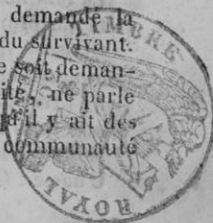 demande la
du survivant.
e soit deman-
ité, ne parle
qu'il y ait des
communauté
TIMBRE
ROYAL